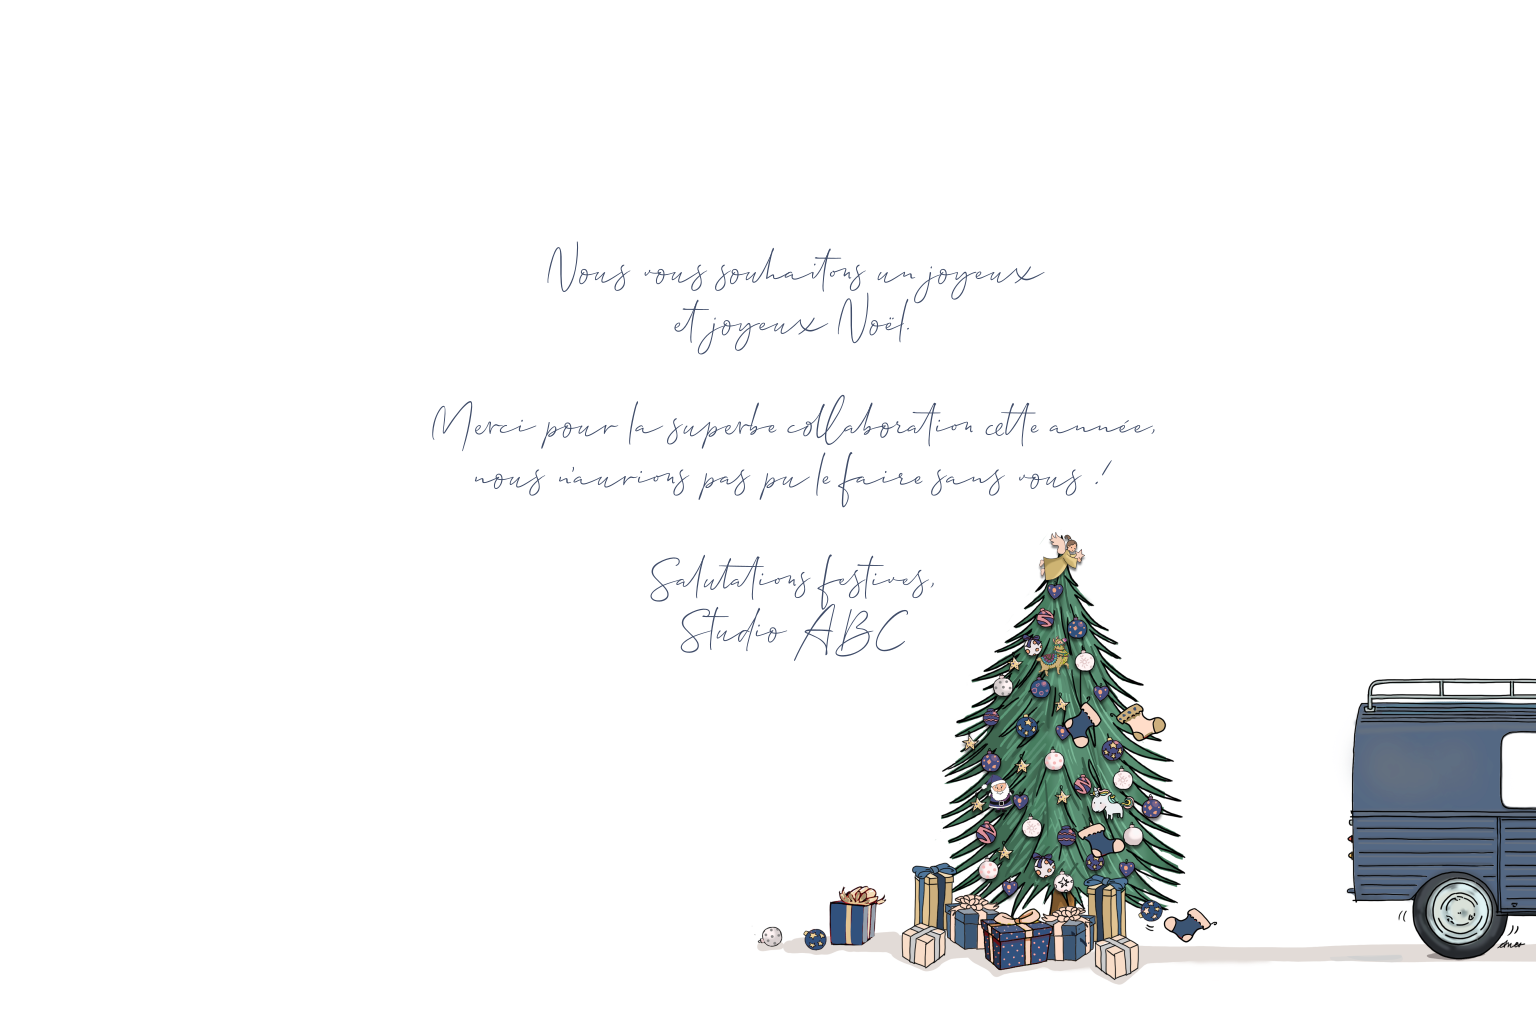 Nous vous souhaitons un joyeux
et joyeux Noël.
Merci pour la superbe collaboration cette année,
nous n'aurions pas pu le faire sans vous !
Salutations festives,
Studio ABC